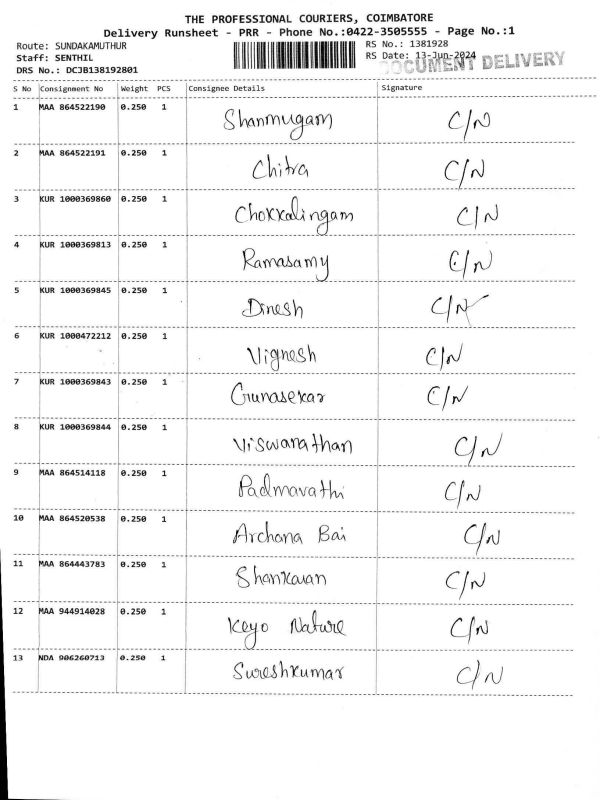 THE PROFESSIONAL COURIERS, COIMBATORE
Delivery Runsheet - PRR - Phone No.:0422-3505555 - Page No.:1
Route: SUNDAKAMUTHUR RS No.: 1381928
Staff: SENTHIL RS Date: 13-Jun-2024
DOCUMENT DELIVERY
DRS No.: DCJB138192801
S No Consignment No Weight PCS Consignee Details Signature
1 MAA 864522190 0.250 1 Shanmugam C/N
2 MAA 864522191 0.250 1 Chitra C/N
3 KUR 1000369860 0.250 1 Chokkalingam C/N
4 KUR 1000369813 0.250 1 Ramasamy C/N
5 KUR 1000369845 0.250 1 Dinesh C/N
6 KUR 1000472212 0.250 1 Vignesh C/N
7 KUR 1000369843 0.250 1 Gunasekar C/N
8 KUR 1000369844 0.250 1 Viswanathan C/N
9 MAA 864514118 0.250 1 Padmavathi C/N
10 MAA 864520538 0.250 1 Archana Bai C/N
11 MAA 864443783 0.250 1 Shankaran C/N
12 MAA 944914028 0.250 1 Keyo Nature C/N
13 NDA 906260713 0.250 1 Sureshkumar C/N